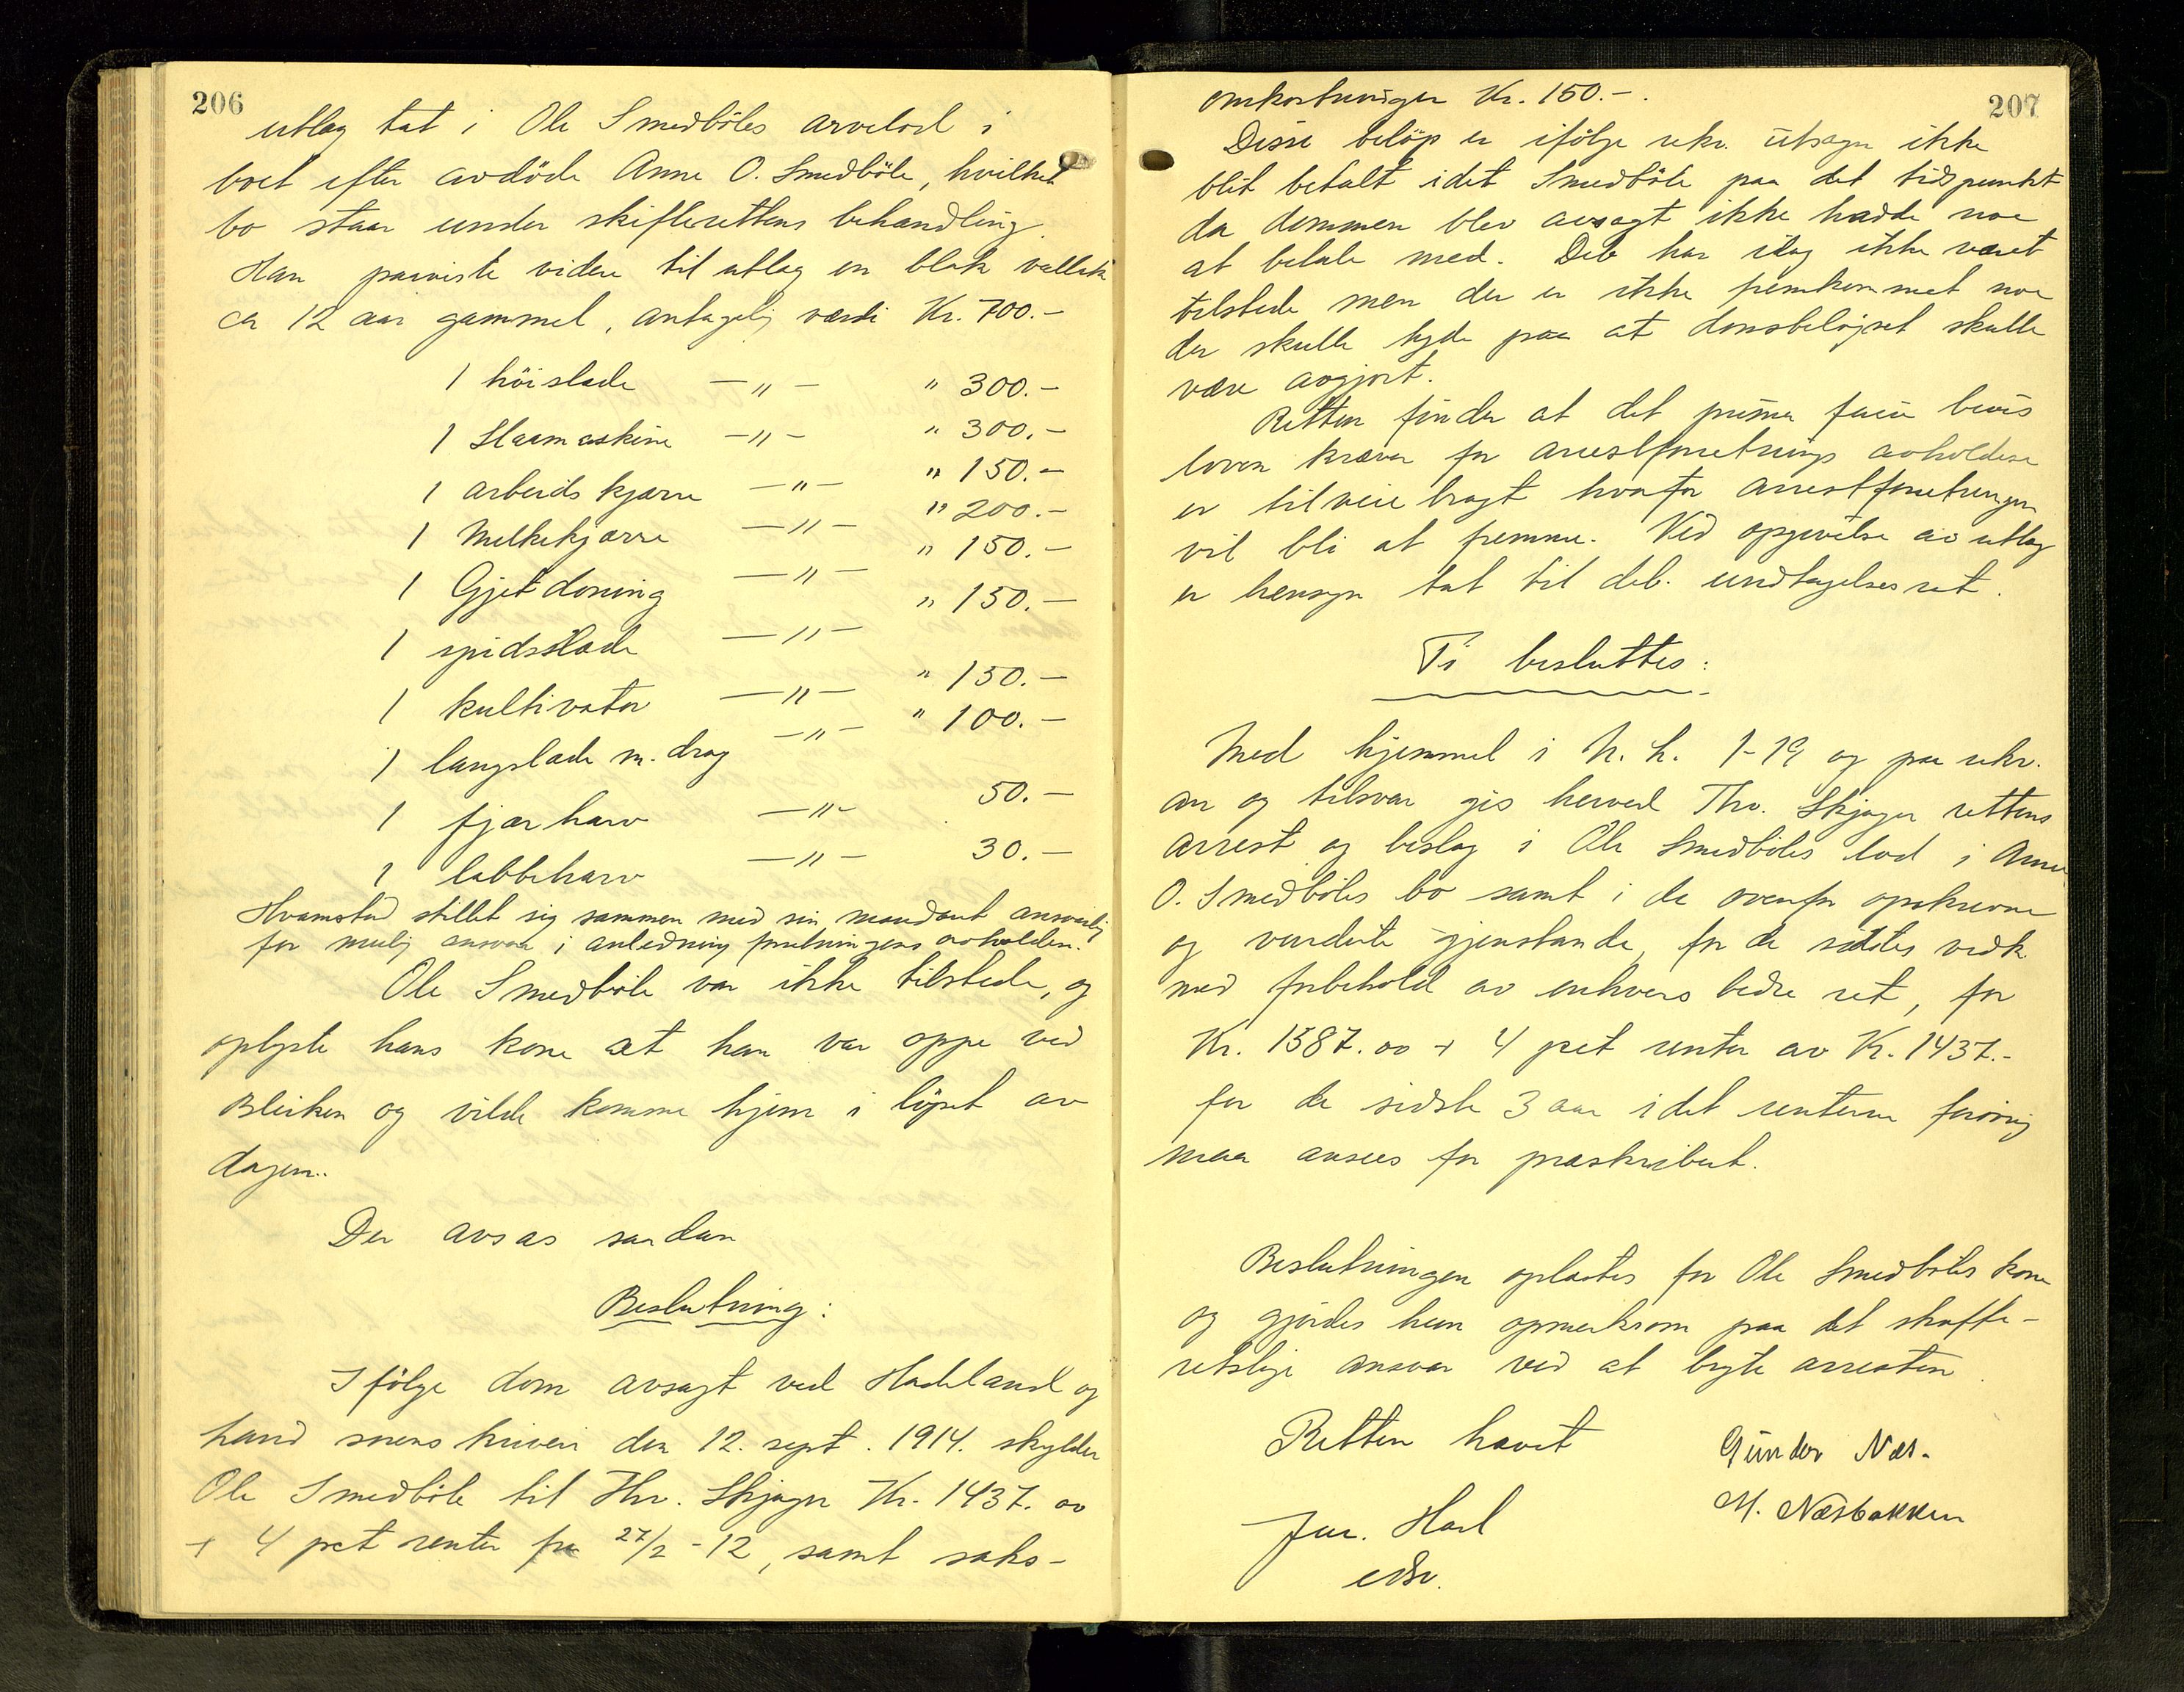 206
utlæg tat i Ole Smedböles arvelod i
boet efter avdöde Anne O. Smedböle, hvilket
bo staar under skifterettens behandling.
Han paaviste videre til utlæg en blak vallak
ca 12 aar gammel, antagelig værdi Kr. 700.-
1 höislæde —„— " 300.-
1 Slaamaskine —„— " 300.-
1 arbeidskjærre —„— " 150.-
1 Melkekjærre —„— " 200.-
1 Gjet doning —„— " 150.-
1 spidsslæde —„— " 150.-
1 kultivator —„— " 150.-
1 langslæde m. drag —„— " 100.-
1 fjærharv —„— 50.-
1 labbeharv —„— 30.-
Hvamstad stillet sig sammen med sin mandant ansvarlig
for mulig ansvar i anledning forretningens avholdelse.
Ole Smedböle var ikke tilstede, og
oplyste hans kone at han var oppe ved
Bleiken og vilde komme hjem i löpet av
dagen.
Der avsas saadan
Beslutning:
Ifölge dom avsagt ved Hadeland og
Land sorenskriveri den 12. sept. 1914. skylder
Ole Smedböle til Thv. Skjager Kr. 1437.00
+ 4 pct renter fra 27/2-12, samt saks-
207
omkostninger Kr. 150.-.
Disse belöp er ifölge rekv. utsagn ikke
blit betalt idet Smedböle paa det tidspunkt
da dommen blev avsagt ikke hadde noe
at betale med. Deb har idag ikke været
tilstede men der er ikke fremkommet noe
der skulle tyde paa at domsbelöpet skulle
være avgjort.
Retten finder at det prima facie bevis
loven kræver for arrestforretnings avholdelse
er tilveiebragt hvorfor arrestforretningen
vil bli at fremme. Ved opgivelse av utlæg
er hensyn tat til deb. undtagelsesret.
Ti besluttes:
Med hjemmel i N. L. 1-19 og paa rekv.
an og tilsvar gis herved Thv. Skjager rettens
arrest og beslag i Ole Smedböles lod i Anne
O. Smedböles bo samt i de ovenfor opskrevne
og vurderte gjenstande, for de sidstes vedk
med forbehold av enhvers bedre ret, for
Kr. 1587.00 + 4 pct renter av Kr. 1437.-
for de sidste 3 aar idet renterne forövrig
maa ansees for præskribert.
Beslutningen oplæstes for Ole Smedböles kone
og gjordes hun opmerksom paa det straffe-
retslige ansvar ved at bryte arresten.
Retten hævet
Gunder Næs.
M. Næsbakken
Jur. Hasl
edsv.